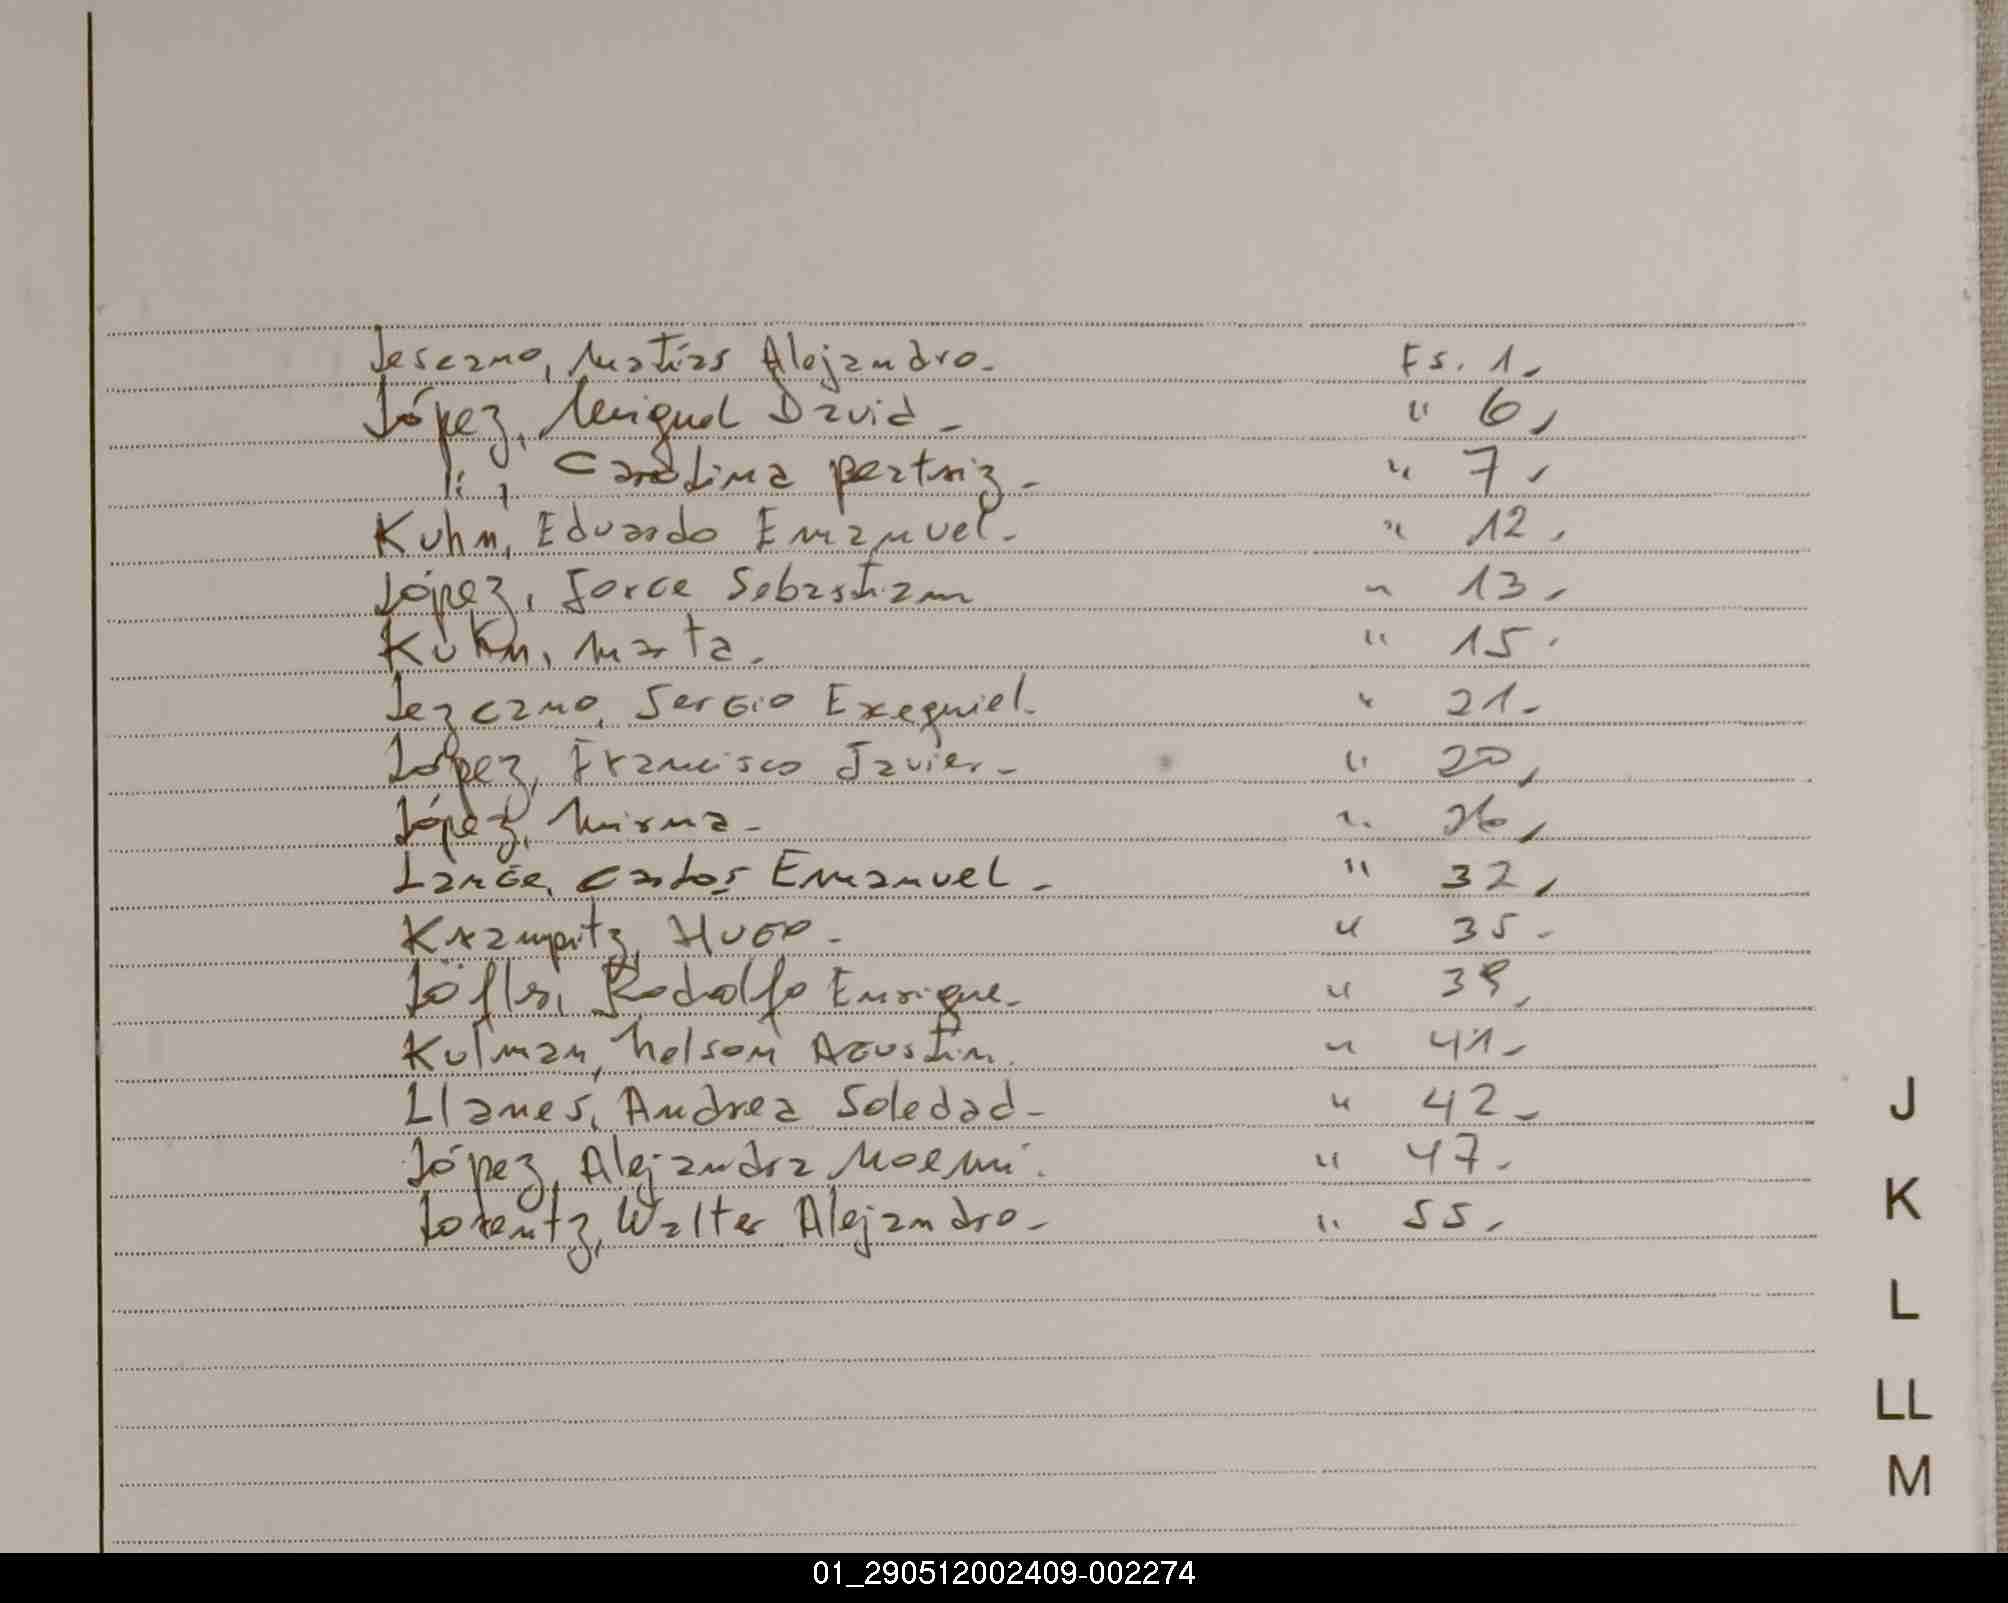 Lescano, Matías Alejandro. Fs. 1.
López, Miguel David. " 6,
", Carolina Beatriz. " 7,
Kuhn, Eduardo Emanuel. " 12,
López, Jorge Sebastian " 13,
Kuhn, Marta. " 15.
Lezcano, Sergio Exequiel. " 21.
López, Francisco Javier. " 20,
López, Mirna. " 26,
Lange, Carlos Emanuel. " 32,
Krampitz, Hugo. " 35.
Löfler, Rodolfo Enrique. " 39,
Kulman, Nelson Agustin. " 41.
Llanes, Andrea Soledad. " 42.
López, Alejandra Noemi. " 47.
Lorentz, Walter Alejandro. " 55.
J
K
L
LL
M
01_290512002409-002274